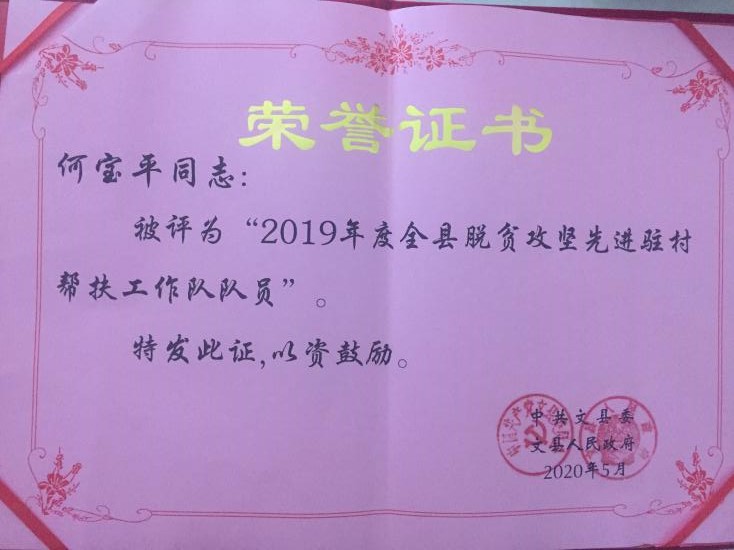 荣誉证书
何宝平同志:
被评为“2019年度全县脱贫攻坚先进驻村
帮扶工作队队员”。
特发此证,以资鼓励。
中共文县委
文县人民政府
2020年5月